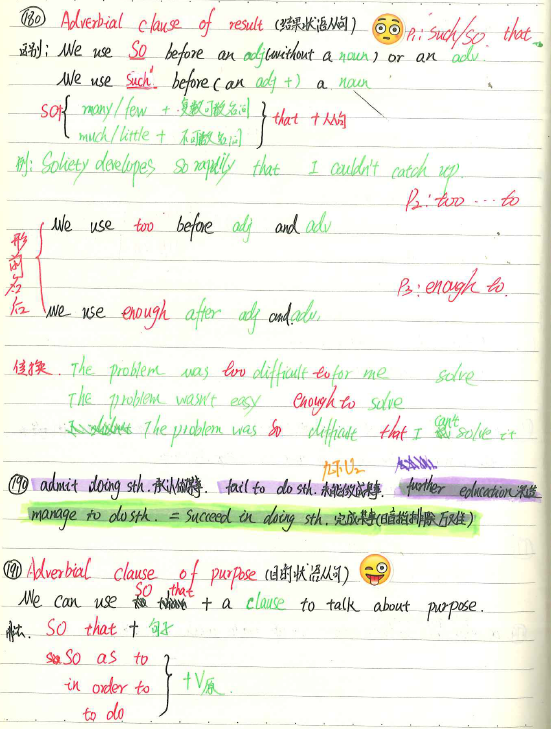 (180) Adverbial clause of result (结果状语从句) P1: such/so. that
区别: We use SO before an adj(without a noun) or an adv.
We use such before (an adj +) a noun
SO { many/few + 复数可数名词
much/little + 不可数名词 } that + 从句
例: Sokiety developes so rapidly that I couldn't catch up.
P2: too ... to
We use too before adj and adv
形前名后
P3: enough to.
We use enough after adj and adv.
转换. The problem was too difficult to for me solve
The problem wasn't easy enough to solve
The problem was so difficult that I can't solve it
(190) admit doing sth. 承认做某事. fail to do sth. 未能做成某事. further education
manage to do sth. = succeed in doing sth. 完成某事
(191) Adverbial clause of purpose (目的状语从句)
We can use so that + a clause to talk about purpose.
SO that + 句子
SO as to
in order to
to do } + V原